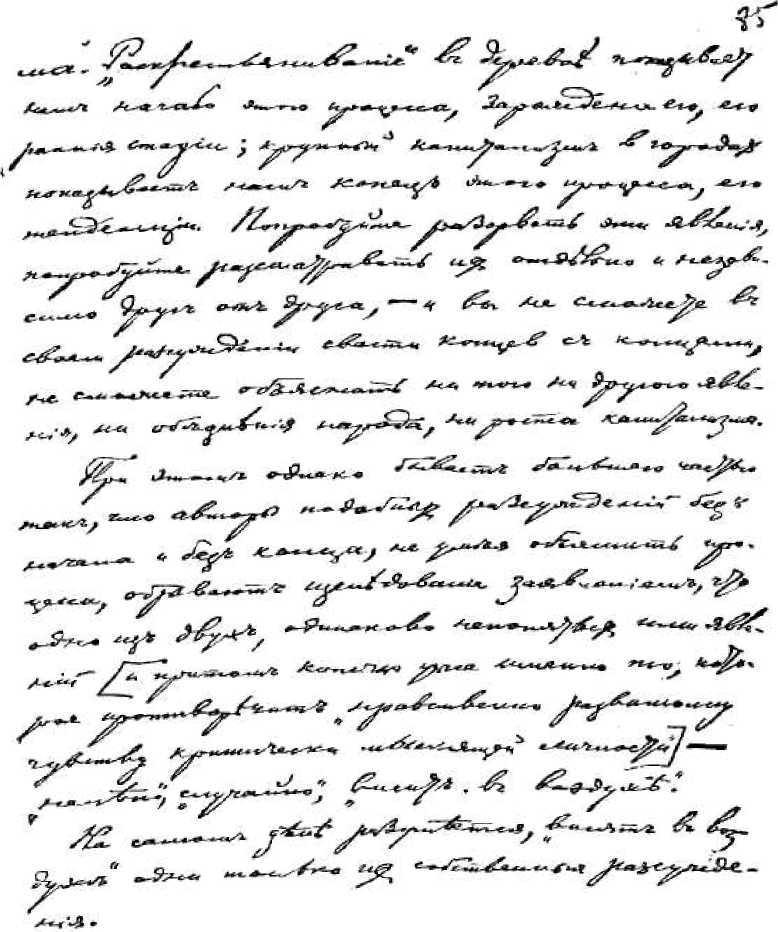 85
ма. „Раскрестьяниваніе" въ деревнѣ показываетъ
намъ начало этого процесса, зарожденіе его, его
раннія стадіи; крупный капитализмъ в городахъ
показываетъ намъ конецъ этого процесса, его
тенденціи. Попробуйте разорвать эти явленія,
попробуйте разсматривать их отдѣльно и незави-
симо другъ отъ друга, — и вы не сможете въ
своем разсужденіи свести концев съ концами,
не сможете объяснить ни того ни другого явле-
нія, ни обѣднѣнія народа, ни роста капитализма.
При этомъ однако бываетъ большею частью
такъ, что авторы подобных разсужденій безъ
начала и безъ конца, не умѣя объяснить про-
цесса, обрываютъ изслѣдованіе заявленіемъ, что
одно изъ двухъ, одинаково непонятых ими явле-
ній [и притомъ конечно ужъ именно то, кото-
рое противорѣчитъ „нравственно развитому
чувству критически мыслящей личности"] —
„нелѣпо", „случайно", „виситъ въ воздухѣ".
На самомъ дѣлѣ разумѣется, „висятъ въ воз-
духѣ" одни только их собственныя разсужде-
нія.